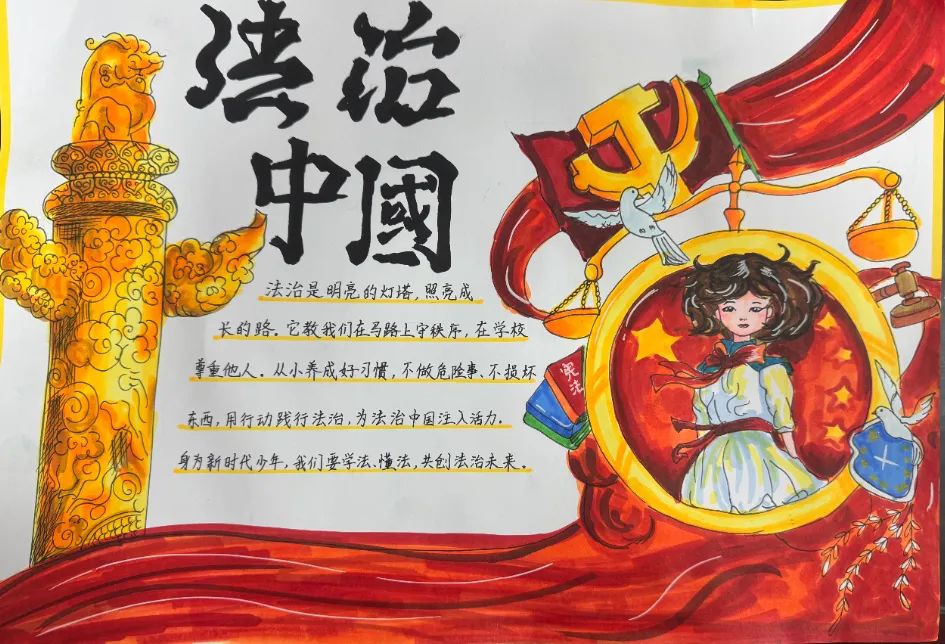 法治
中國
法治是明亮的灯塔，照亮成
长的路。它教我们在马路上守秩序，在学校
尊重他人。从小养成好习惯，不做危险事、不损坏
东西，用行动践行法治，为法治中国注入活力。
身为新时代少年，我们要学法、懂法，共创法治未来。
宪法